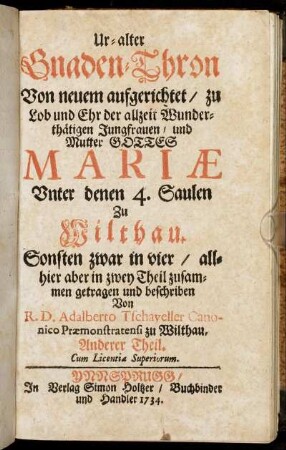 Ur-alter
Gnaden-Thron
Von neuem aufgerichtet / zu
Lob und Ehr der allzeit Wunder-
thätigen Jungfrauen / und
Mutter GOTTES
MARIÆ
Vnter denen 4. Saulen
Zu
Wilthau.
Sonsten zwar in vier / all-
hier aber in zwey Theil zusam-
men getragen und beschriben
Von
R. D. Adalberto Tschaveller Cano-
nico Præmonstratensi zu Wilthau.
Anderer Theil.
Cum Licentia Superiorum.
YNNSPRUGG /
In Verlag Simon Holtzer / Buchbinder
und Handler 1734.